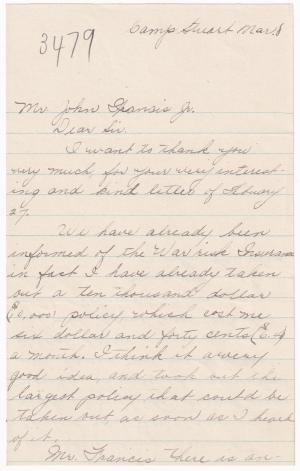 3479
Camp Stuart Mar. 8
Mr. John Francis Jr.
Dear Sir.
I want to thank you
very much, for your very interest-
ing and kind letter of
27.
We have already been
informed of the War risk Insurance
in fact I have already taken
out a ten thousand dollar
policy, which cost me
six dollar and forty cents
a month. I think it a very
good idea, and took out the
largest policy that could be
taken out, as soon as I heard
of it.
Mr. Francis there is an-